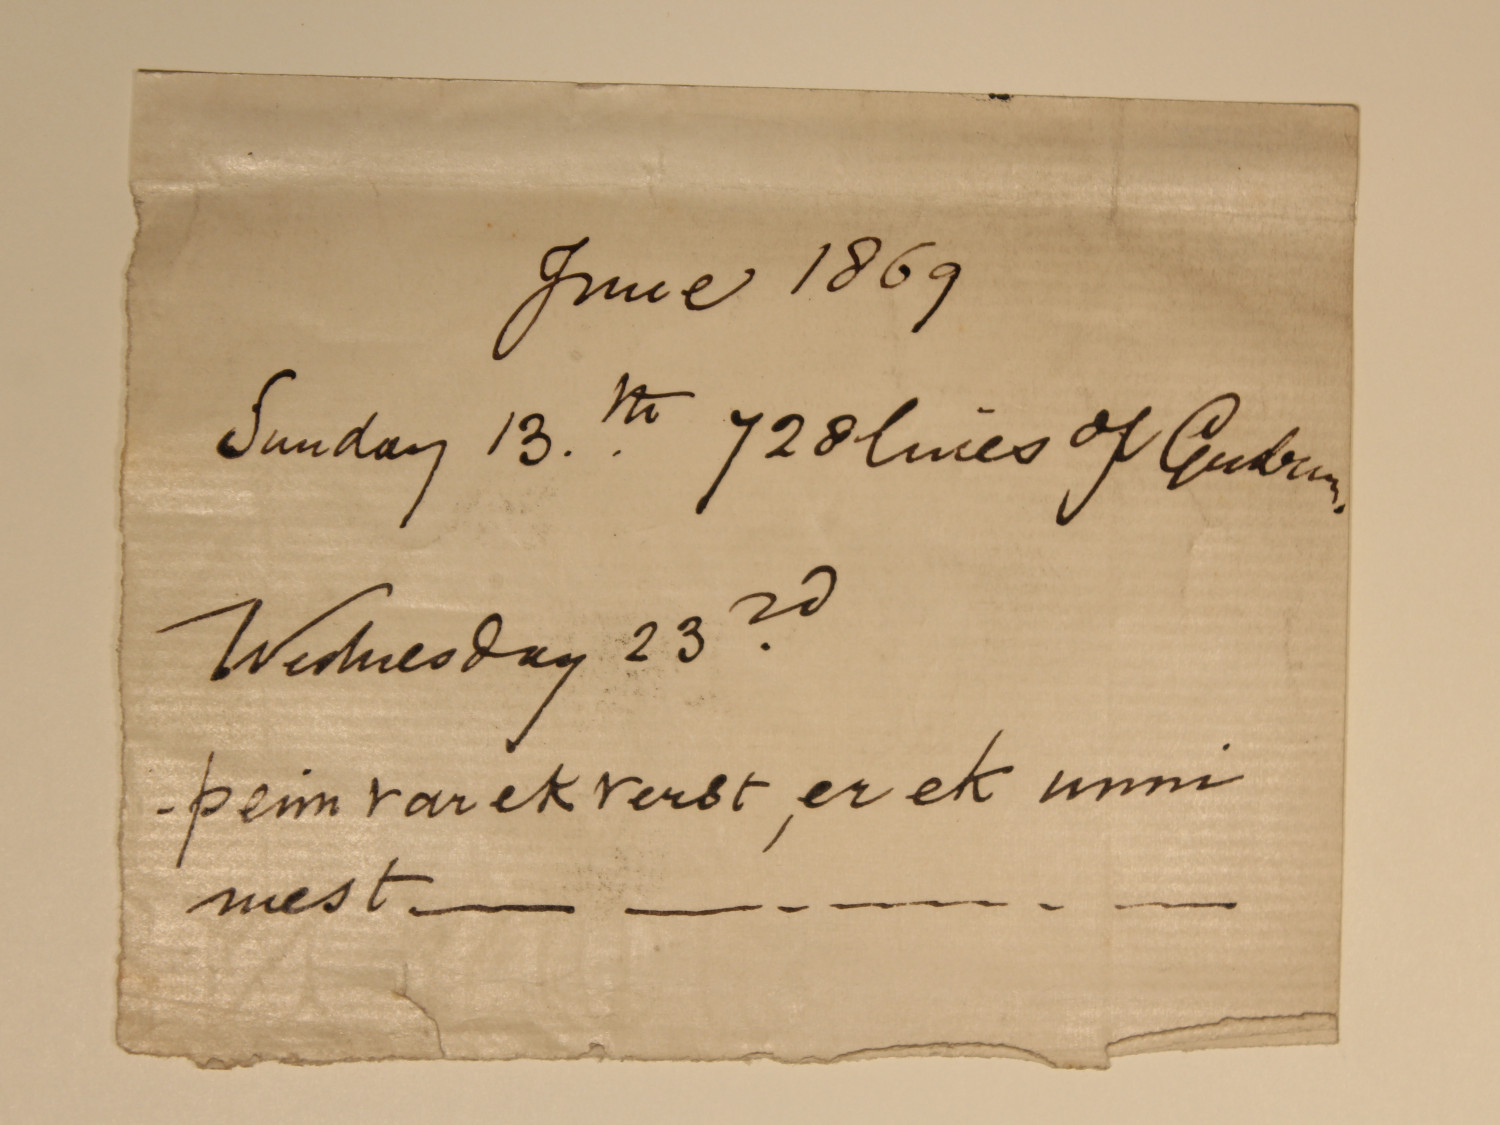 June 1869
Sunday 13.th 728 lines of Gudrun.
Wednesday 23rd
-þeim var ek verst, er ek unni
mest — — - — - —